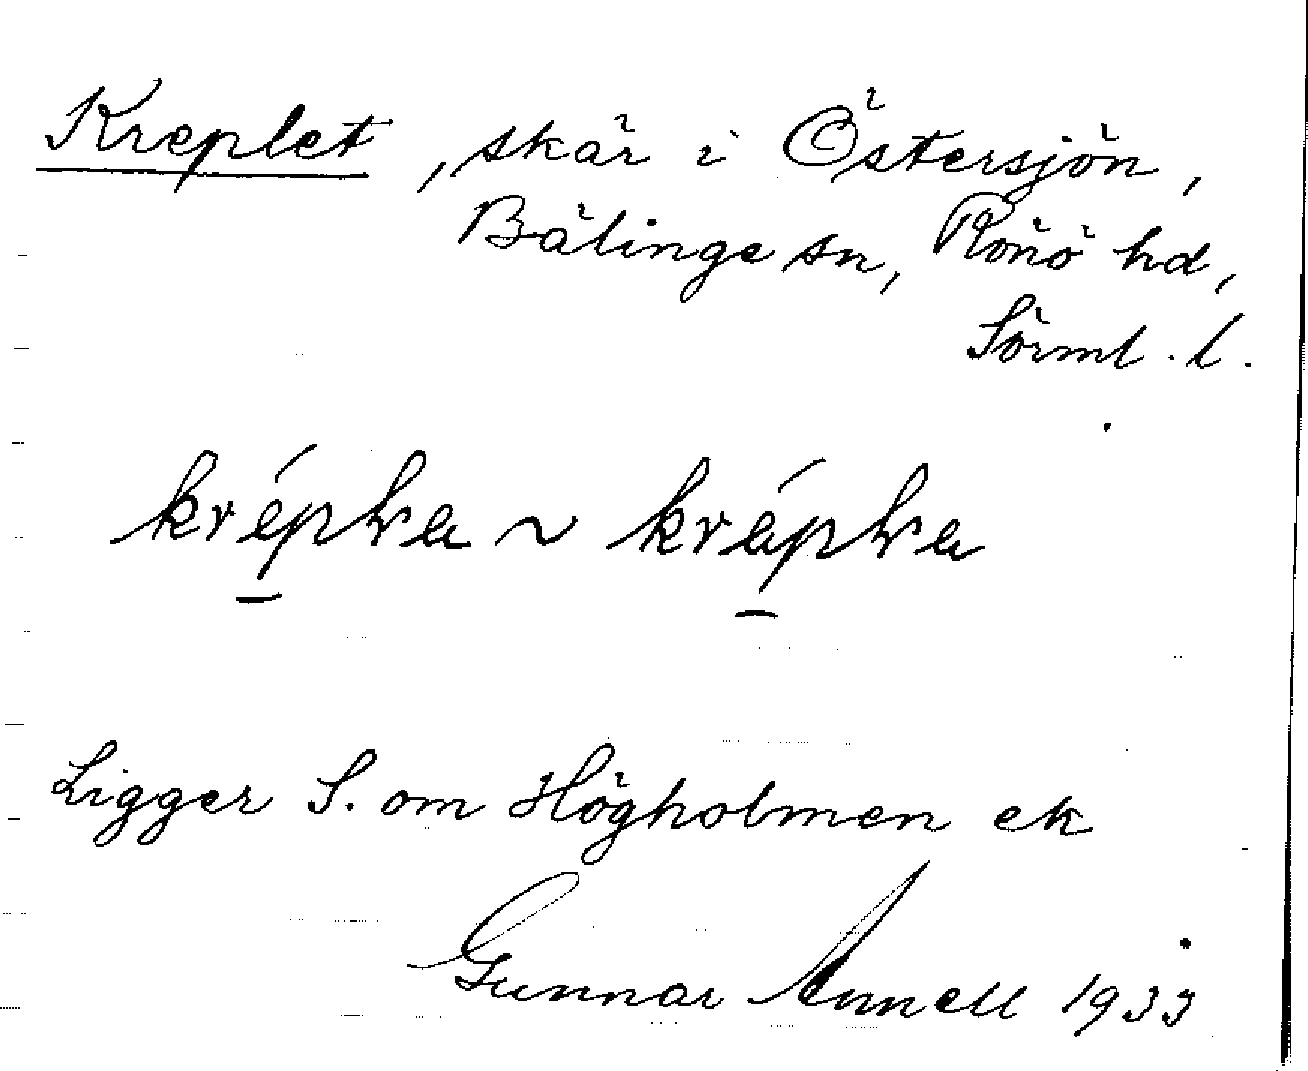 Kreplet, skär i Östersjön,
Bälinge sn, Rönö hd,
Sörml. l.
krépka ~ krápka
Ligger S. om Högholmen ek
Gunnar Annell 1933